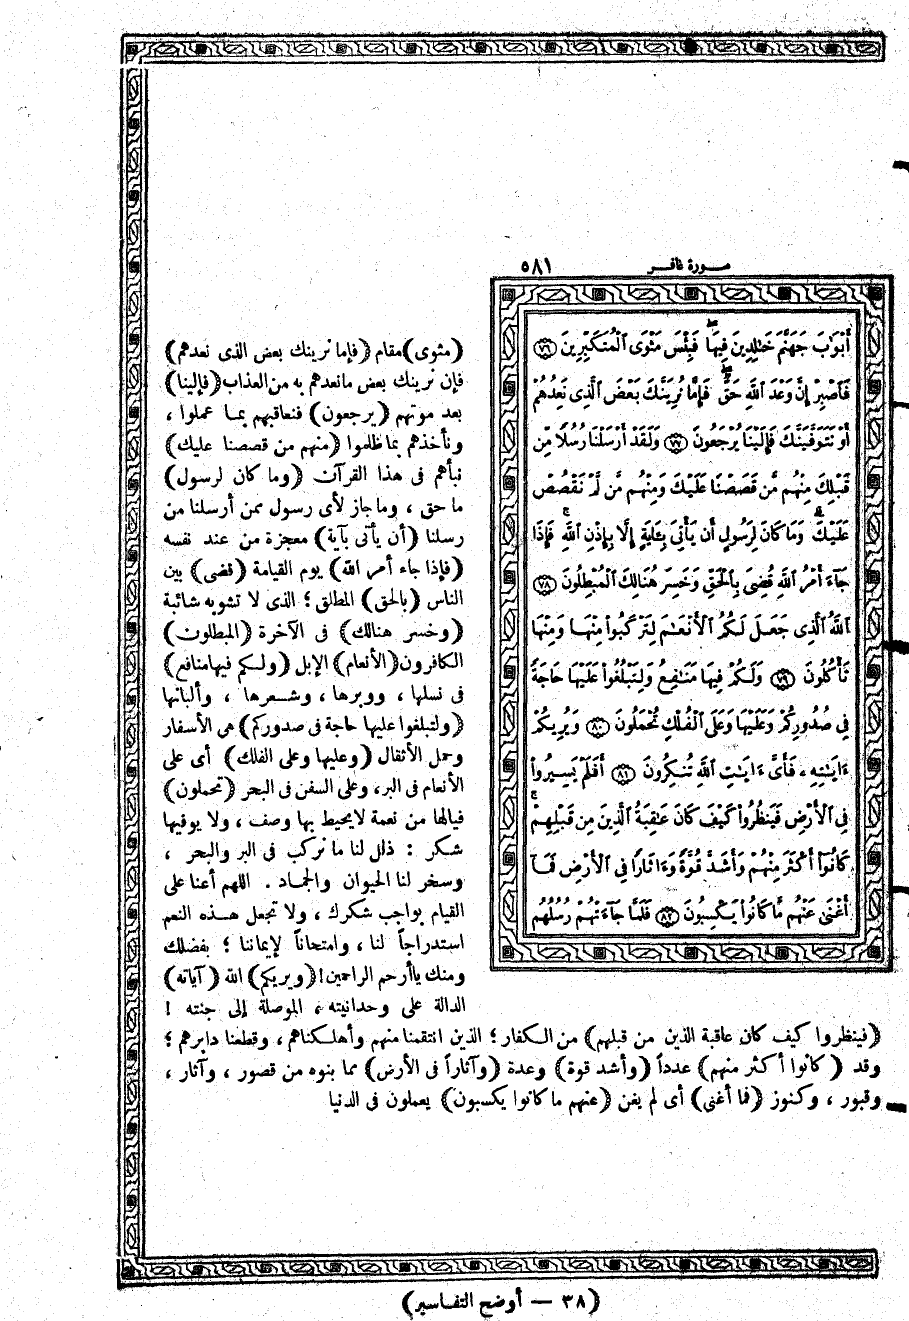 سورة غافر
٥٨١
أَبْوَٰبَ جَهَنَّمَ خَٰلِدِينَ فِيهَا ۖ فَبِئْسَ مَثْوَى ٱلْمُتَكَبِّرِينَ ٧٦
فَٱصْبِرْ إِنَّ وَعْدَ ٱللَّهِ حَقٌّ ۚ فَإِمَّا نُرِيَنَّكَ بَعْضَ ٱلَّذِى نَعِدُهُمْ
أَوْ نَتَوَفَّيَنَّكَ فَإِلَيْنَا يُرْجَعُونَ ٧٧ وَلَقَدْ أَرْسَلْنَا رُسُلًا مِّن
قَبْلِكَ مِنْهُم مَّن قَصَصْنَا عَلَيْكَ وَمِنْهُم مَّن لَّمْ نَقْصُصْ
عَلَيْكَ ۗ وَمَا كَانَ لِرَسُولٍ أَن يَأْتِىَ بِـَٔايَةٍ إِلَّا بِإِذْنِ ٱللَّهِ ۚ فَإِذَا
جَآءَ أَمْرُ ٱللَّهِ قُضِىَ بِٱلْحَقِّ وَخَسِرَ هُنَالِكَ ٱلْمُبْطِلُونَ ٧٨
ٱللَّهُ ٱلَّذِى جَعَلَ لَكُمُ ٱلْأَنْعَٰمَ لِتَرْكَبُوا۟ مِنْهَا وَمِنْهَا
تَأْكُلُونَ ٧٩ وَلَكُمْ فِيهَا مَنَٰفِعُ وَلِتَبْلُغُوا۟ عَلَيْهَا حَاجَةً
فِى صُدُورِكُمْ وَعَلَيْهَا وَعَلَى ٱلْفُلْكِ تُحْمَلُونَ ٨٠ وَيُرِيكُمْ
ءَايَٰتِهِۦ فَأَىَّ ءَايَٰتِ ٱللَّهِ تُنكِرُونَ ٨١ أَفَلَمْ يَسِيرُوا۟
فِى ٱلْأَرْضِ فَيَنظُرُوا۟ كَيْفَ كَانَ عَٰقِبَةُ ٱلَّذِينَ مِن قَبْلِهِمْ ۚ
كَانُوٓا۟ أَكْثَرَ مِنْهُمْ وَأَشَدَّ قُوَّةً وَءَاثَارًا فِى ٱلْأَرْضِ فَمَآ
أَغْنَىٰ عَنْهُم مَّا كَانُوا۟ يَكْسِبُونَ ٨٢ فَلَمَّا جَآءَتْهُمْ رُسُلُهُم
(مثوى) مقام (فإما نرينك بعض الذى نعدهم)
فإن نرينك بعض ما نعدهم به من العذاب (فإلينا)
بعد موتهم (يرجعون) فنعاقبهم بما عملوا ،
ونأخذهم بما ظلموا (منهم من قصصنا عليك)
نبأهم فى هذا القرآن (وما كان لرسول)
ما حق ، وما جاز لأى رسول ممن أرسلنا من
رسلنا (أن يأتى بآية) معجزة من عند نفسه
(فإذا جاء أمر الله) يوم القيامة (قضى) بين
الناس (بالحق) المطلق ؛ الذى لا تشوبه شائبة
(وخسر هنالك) فى الآخرة (المبطلون)
الكافرون (الأنعام) الإبل (ولكم فيها منافع)
فى نسلها ، ووبرها ، وشعرها ، وألبانها
(ولتبلغوا عليها حاجة فى صدوركم) هى الأسفار
وحمل الأثقال (وعليها وعلى الفلك) أى على
الأنعام فى البر، وعلى السفن فى البحر (تحملون)
فيالها من نعمة لا يحيط بها وصف ، ولا يوفيها
شكر : ذلل لنا ما نركب فى البر والبحر ،
وسخر لنا الحيوان والجماد . اللهم أعنا على
القيام بواجب شكرك ، ولا تجعل هذه النعم
استدراجاً لنا ، وامتحاناً لإيماننا ؛ بفضلك
ومنك ياأرحم الراحمين! (ويريكم) الله (آياته)
الدالة على وحدانيته ، الموصلة إلى جنته !
(فينظروا كيف كان عاقبة الذين من قبلهم) من الكفار ؛ الذين انتقمنا منهم وأهلكناهم ، وقطعنا دابرهم ؛
وقد (كانوا أكثر منهم) عدداً (وأشد قوة) وعدة (وآثاراً فى الأرض) مما بنوه من قصور ، وآثار ،
وقبور ، وكنوز (فما أغنى) أى لم يغن (عنهم ما كانوا يكسبون) يعملون فى الدنيا
(٣٨ — أوضح التفاسير)